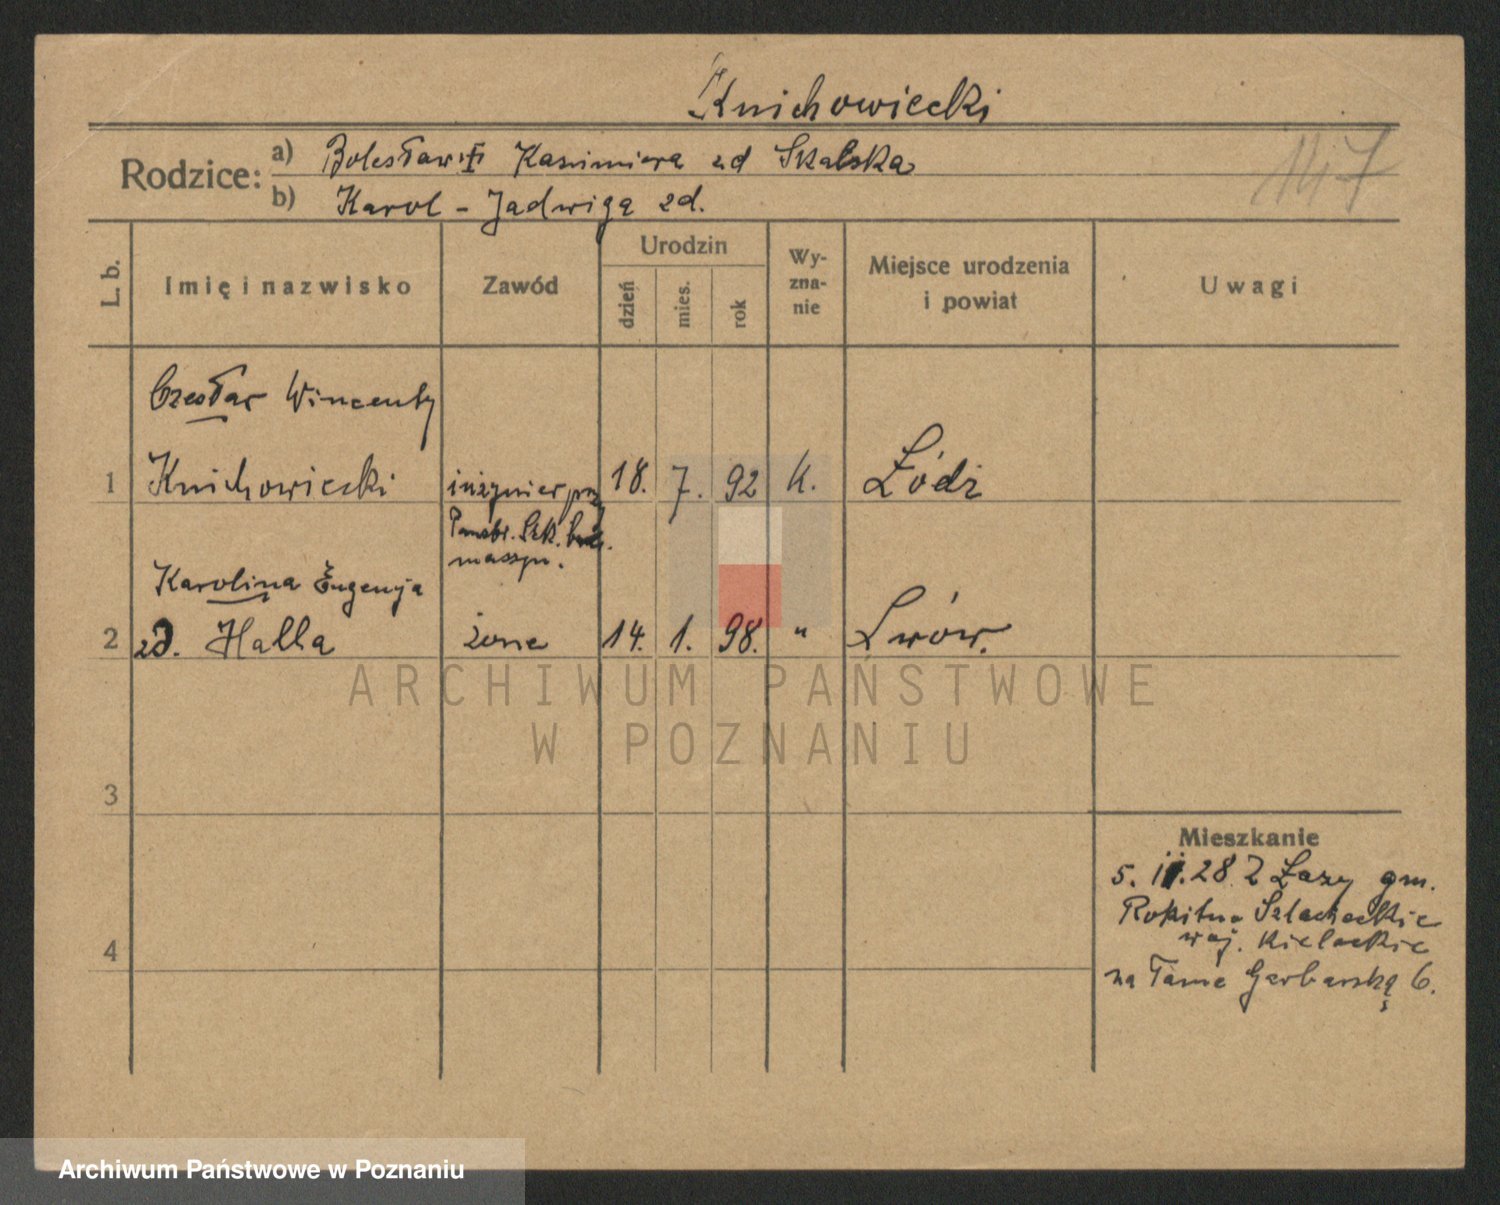 Knichowiecki
Rodzice:
a) Bolesław i Kazimiera zd Skalska
b) Karol - Jadwiga zd.
147
L. b.
Imię i nazwisko
Zawód
Urodzin
dzień
mies.
rok
Wy-
zna-
nie
Miejsce urodzenia
i powiat
Uwagi
Czesław Wincenty
1 Knichowiecki inżynier przy 18. 7. 92 K. Łódź
Państw. Szk. bud.
maszyn.
Karolina Eugenja
2 zd. Halla żona 14. 1. 98. " Lwów.
ARCHIWUM PAŃSTWOWE
W POZNANIU
3
Mieszkanie
5. 11. 28 Z Łazy gm.
Rokitno Szlacheckie
4 woj. Kieleckie
na Tama Garbarska 6.
Archiwum Państwowe w Poznaniu